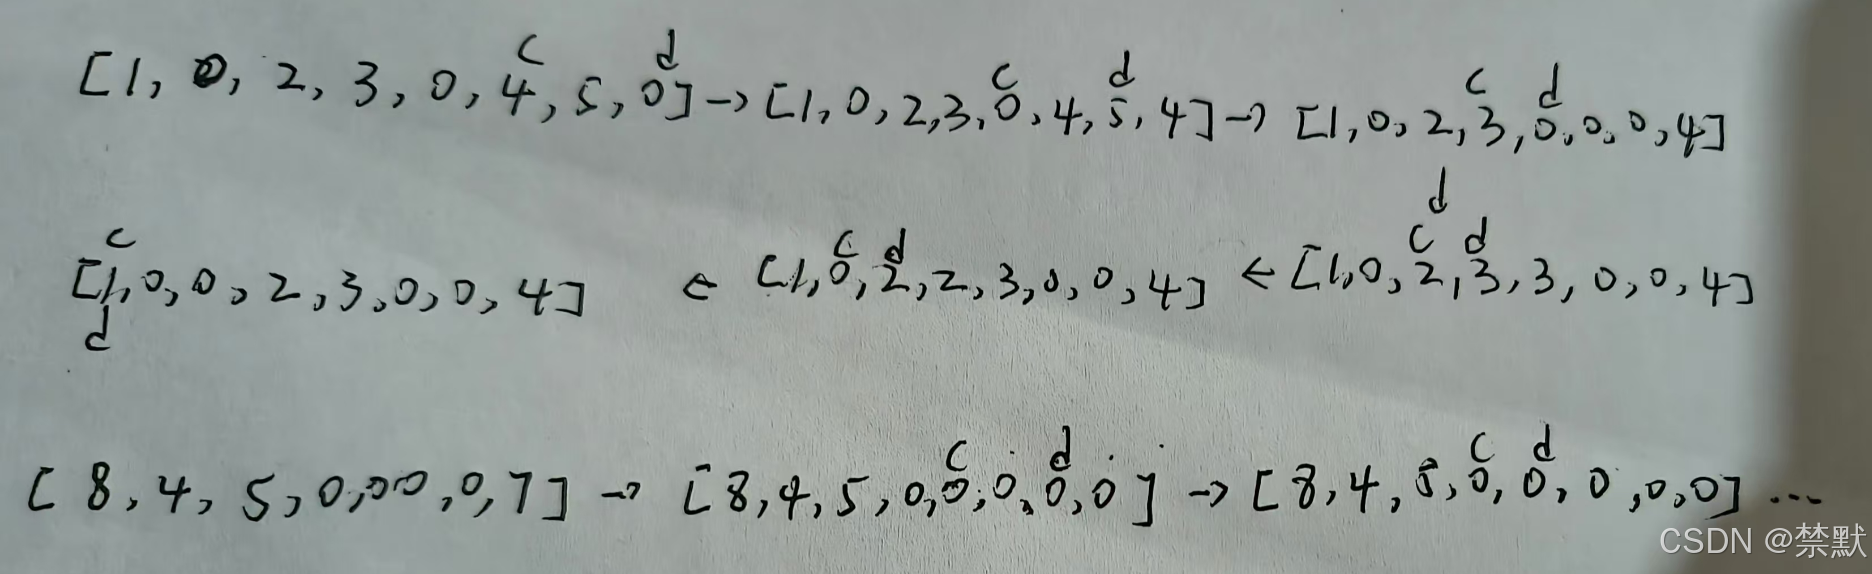 c d c d c d
[1, 0, 2, 3, 0, 4, 5, 0] → [1, 0, 2, 3, 0, 4, 5, 4] → [1, 0, 2, 3, 0, 0, 0, 4]
d
c c d c d
[1, 0, 0, 2, 3, 0, 0, 4] ← [1, 0, 2, 2, 3, 0, 0, 4] ← [1, 0, 2, 3, 3, 0, 0, 4]
d
c d c d
[8, 4, 5, 0, 0, 0, 0, 7] → [8, 4, 5, 0, 0, 0, 0, 0] → [8, 4, 5, 0, 0, 0, 0, 0] ...
CSDN @禁默